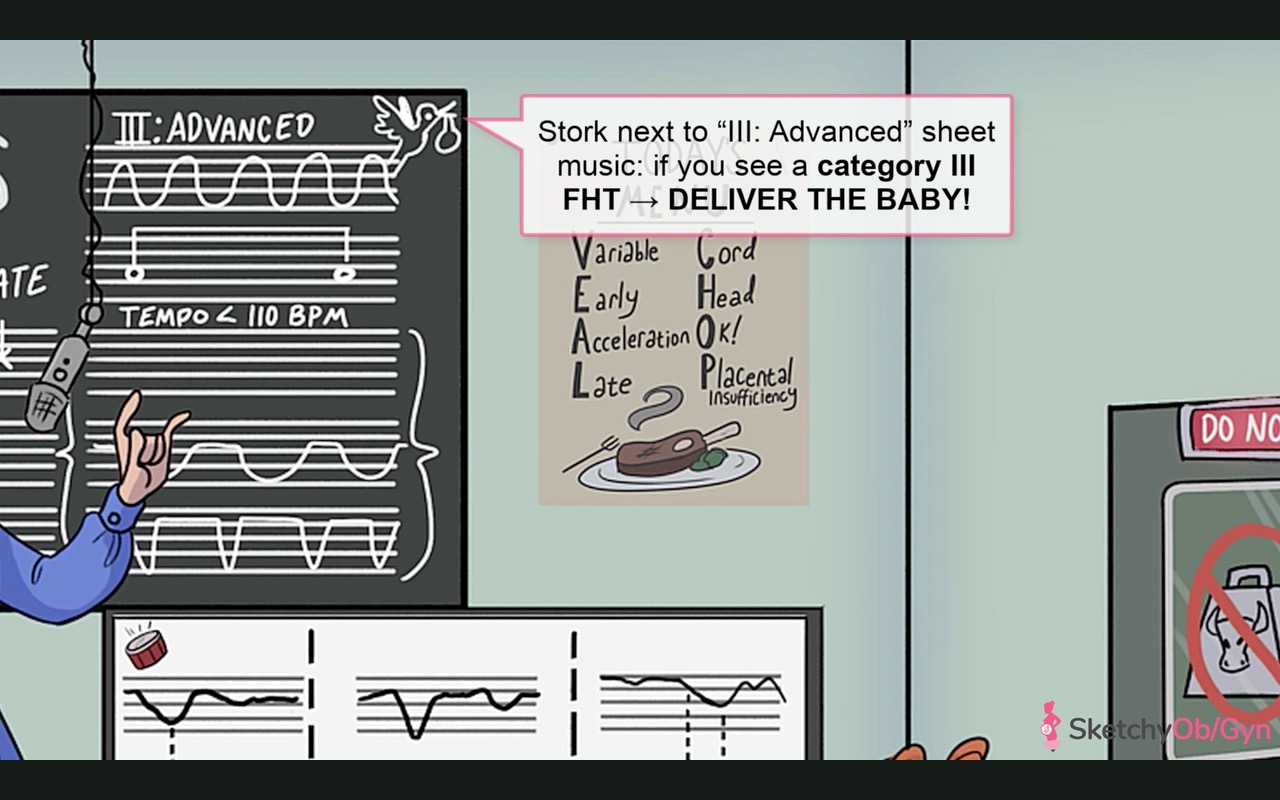 III: ADVANCED
Stork next to “III: Advanced” sheet
music: if you see a category III
FHT → DELIVER THE BABY!
TODAY'S
MENU
Variable Cord
Early Head
Acceleration OK!
Late Placental
Insufficiency
ATE
TEMPO < 110 BPM
DO NO
SketchyOb/Gyn